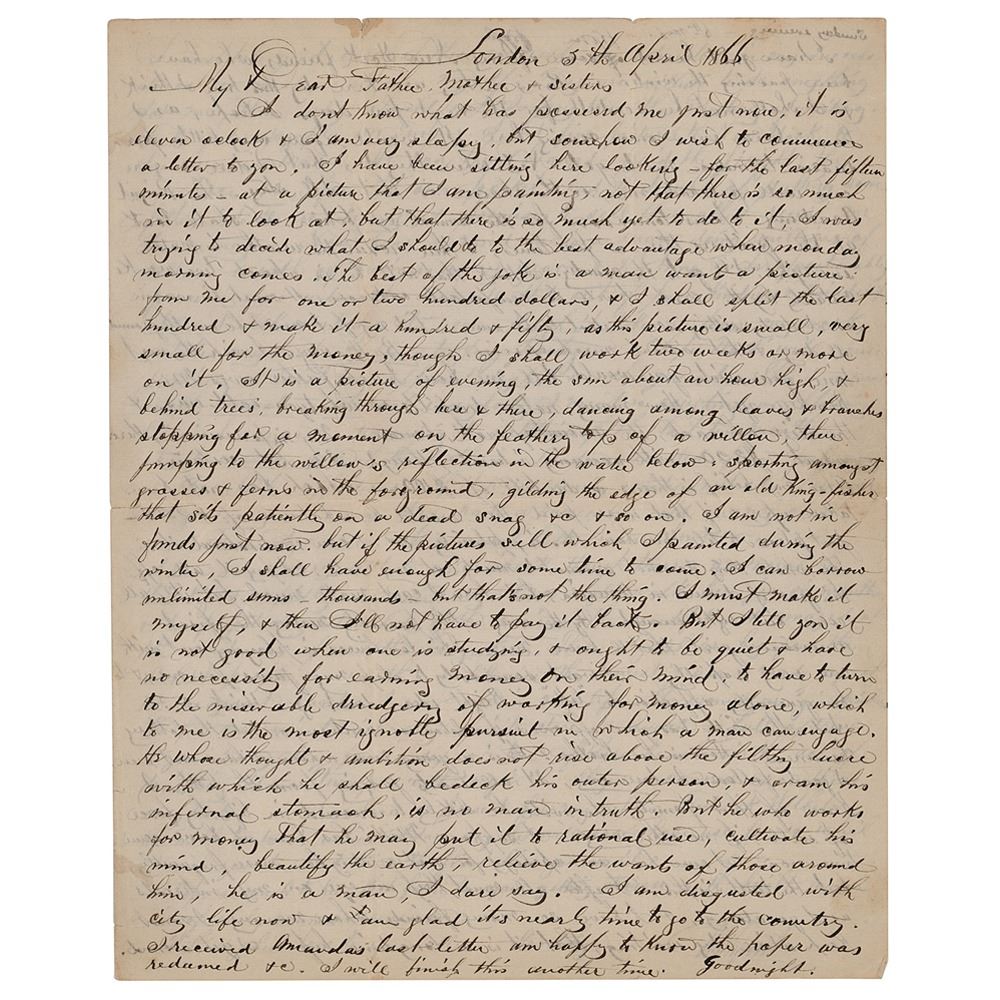 London 5th April 1866
My Dear Father, Mother & sisters
I dont know what has possessed me just now, it is
eleven oclock & I am very sleepy, but somehow I wish to commence
a letter to you. I have been sitting here looking - for the last fifteen
minutes - at a picture that I am painting, not that there is so much
in it to look at, but that there is so much yet to do to it, I was
trying to decide what I should do to the best advantage when monday
morning comes. The best of the joke is a man wants a picture
from me for one or two hundred dollars, & I shall split the last
hundred & make it a hundred & fifty, as this picture is small, very
small for the money, though I shall work two weeks or more
on it. It is a picture of evening, the sun about an hour high, &
behind trees, breaking through here & there, dancing among leaves & branches
stopping for a moment on the feathery top of a willow, then
jumping to the willow's reflection in the water below, sporting amongst
grasses & ferns in the foreground, gilding the edge of an old king-fisher
that sits patiently on a dead snag &c & so on. I am not in
funds just now. but if the pictures sell which I painted during the
winter, I shall have enough for some time to come. I can borrow
unlimited sums - thousands - but that's not the thing. I must make it
myself, & then I'll not have to pay it back. But I tell you it
is not good when one is studying, & ought to be quiet & have
no necessity for earning money on their mind, to have to turn
to the miserable drudgery of working for money alone, which
to me is the most ignoble pursuit in which a man can engage.
He whose thought & ambition does not rise above the filthy lucre
with which he shall bedeck his outer person, & cram his
infernal stomach, is no man in truth. But he who works
for money that he may put it to rational use, cultivate his
mind, beautify the earth, relieve the wants of those around
him, he is a man, I dare say. I am disgusted with
city life now & am glad it's nearly time to go to the country.
I received Amanda's last letter am happy to know the paper was
redeemed &c. I will finish this another time. Goodnight.